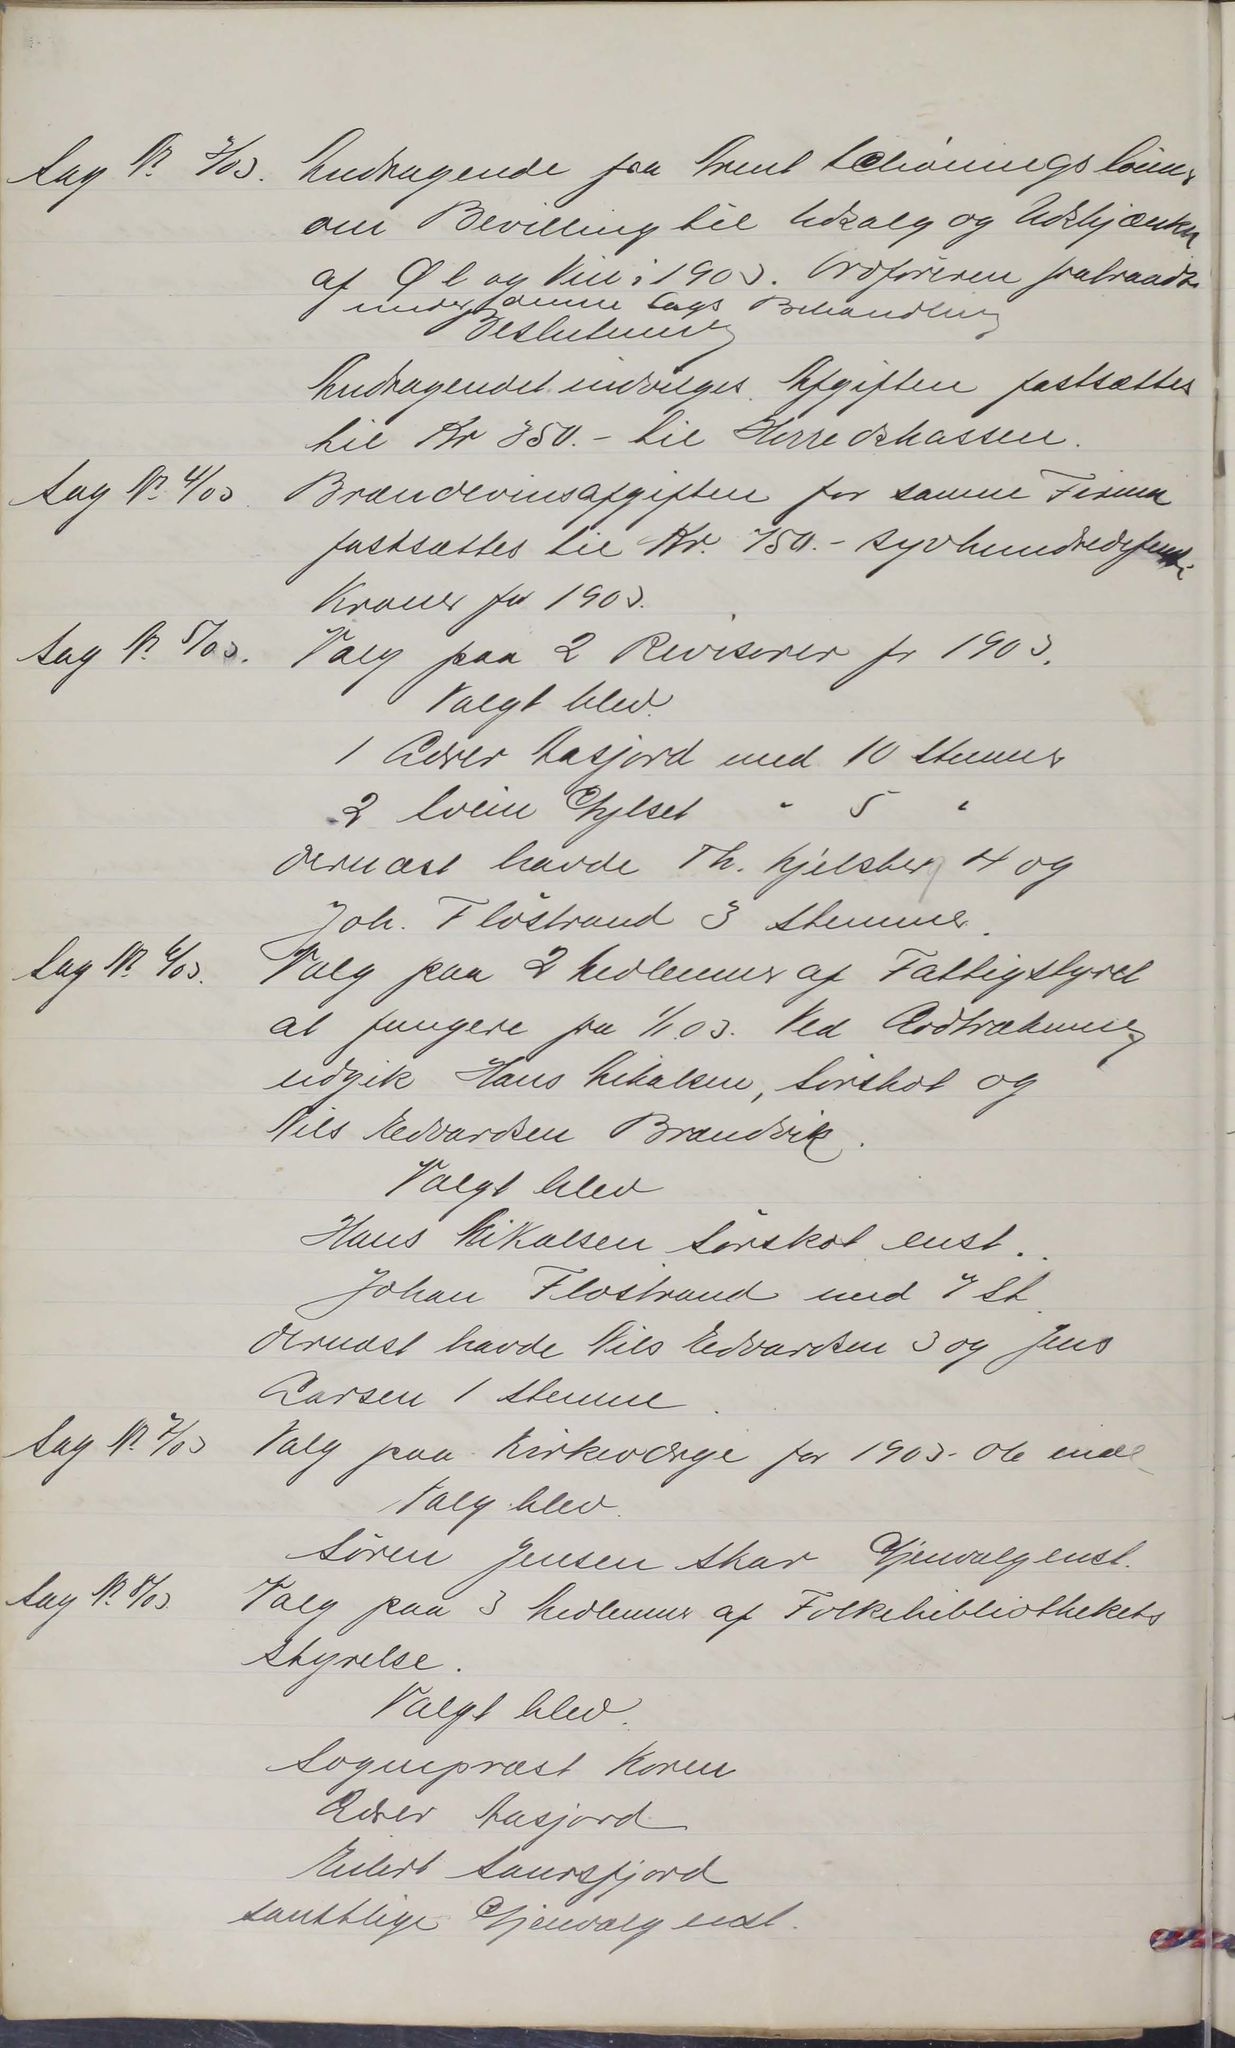 Sag No 3/03. Andragende fra Arent Schönings Sönner
om Bevilling til Udsalg og Udskjænkn
af Øl og Vin i 1903. Ordföreren fratraadte
under denne Sags Behandling
Beslutning
Andragendet indvilges. Afgiften fastsættes
til Kr 350.- til Herredskassen.
Sag No 4/03 Brændevinsafgiften for samme Firma
fastsættes til Kr. 750.- syvhundredefemti
Kroner for 1903.
Sag No 5/03. Valg paa 2 Revisorer for 1903.
Valgt blev
1 Edver Aasjord med 10 Stemmer
2 Svein Gylset " 5 "
dernæst havde Th. Kjelsber 4 og
Joh. Flöstrand 3 Stemmer.
Sag No 6/03. Valg paa 2 Medlemmer af Fattigstyret
at fungere fra 1/1 03. Ved Lodtrækning
udgik Hans Mikalsen, Sörskot og
Nils Edvardsen Brændvik.
Valgt blev
Hans Mikalsen Sörskot enst..
Johan Flostrand med 7 St.
dernæst havde Nils Edvardsen 3 og Jens
Larsen 1 Stemme.
Sag No 7/03 Valg paa Kirkeværge for 1903-06 incl
Valg blev.
Sören Jensen Skar Gjenvalg enst.
Sag No 8/03 Valg paa 3 Medlemmer af Folkebibliothekets
Styrelse.
Valgt blev.
Sognepræst Koren
Edver Aasjord
Eilert Saursfjord
samtlige Gjenvalg enst.